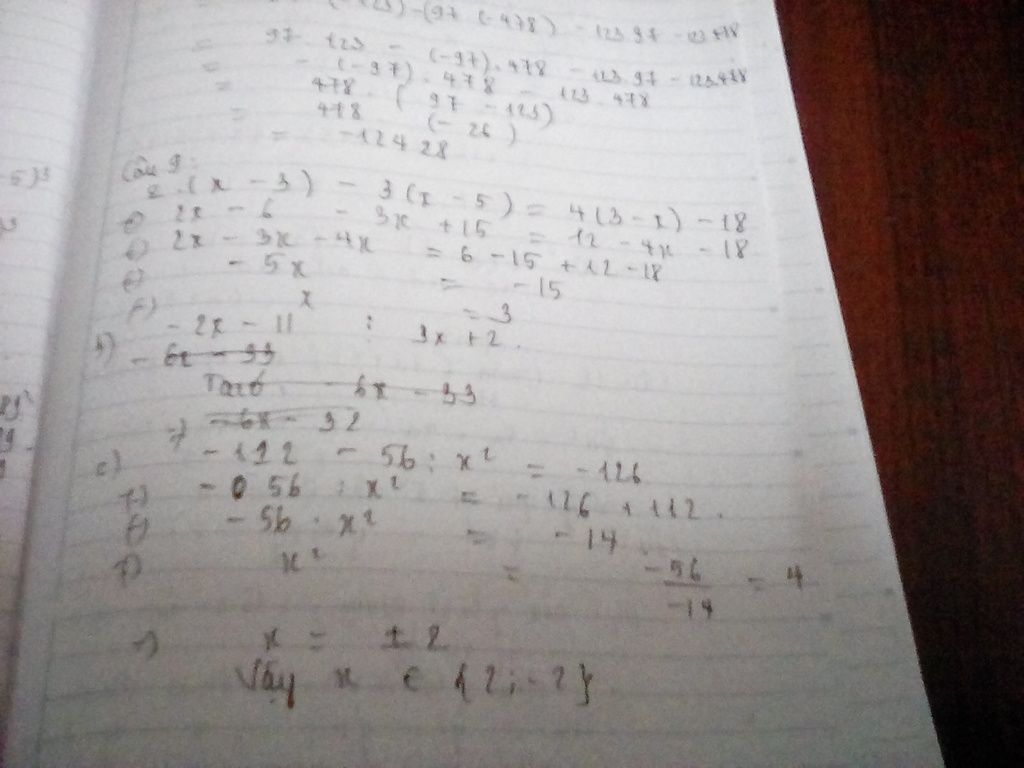 (-123) - (97 (-478) - 123.97 - 123.478
= 97 123 - (-97).478 - 123.97 - 123.478
= - (-97).478 - 123.478
= 478.(97 - 123)
= 478 (-26)
= -12428
Câu 9:
2.(x - 3) - 3(x - 5) = 4(3 - x) - 18
2x - 6 - 3x + 15 = 12 - 4x - 18
2x - 3x - 4x = 6 - 15 + 12 - 18
- 5x = -15
x = 3
b) - 2x - 11 : 3x + 2.
- 6x - 33
Ta có - 6x - 33
=) - 6x - 32
c) -112 - 56 : x² = -126
- 56 : x² = -126 + 112.
- 56 : x² = -14
x² = -56/-14 = 4
x = ±2
Vậy x ∈ {2;-2}
5)3